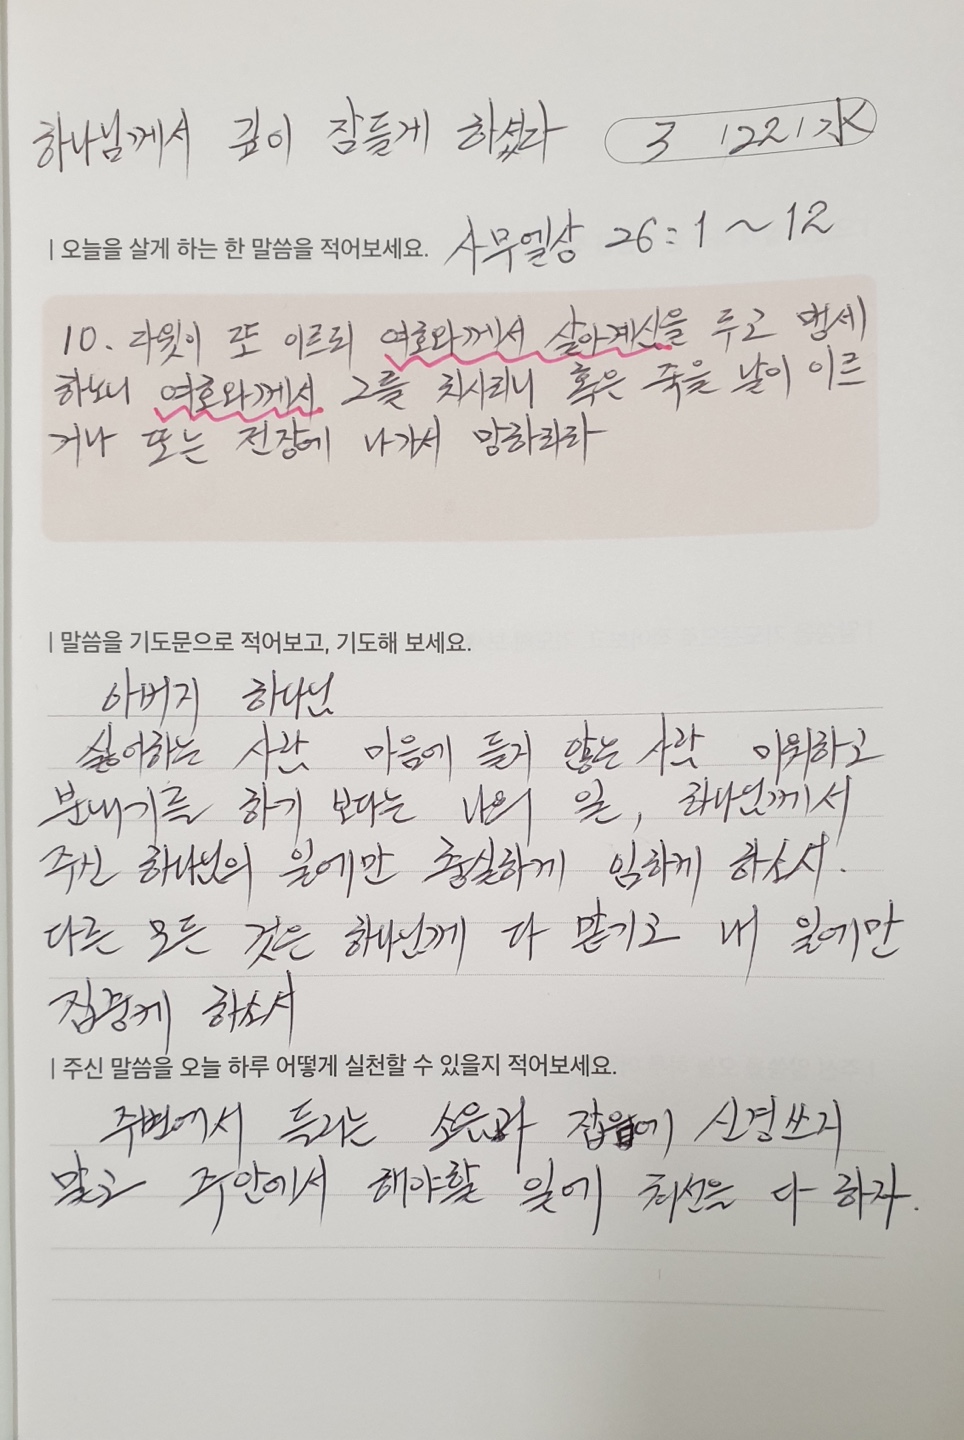 하나님께서 깊이 잠들게 하셨다 3 / 22 / 水
| 오늘을 살게 하는 한 말씀을 적어보세요. 사무엘상 26:1 ~ 12
10. 다윗이 또 이르되 여호와께서 살아계심을 두고 맹세
하노니 여호와께서 그를 치시리니 혹은 죽을 날이 이르
거나 또는 전장에 나가서 망하리라
| 말씀을 기도문으로 적어보고, 기도해 보세요.
아버지 하나님
싫어하는 사람 마음에 들지 않는 사람 미워하고
분내기를 하기 보다는 나의 일, 하나님께서
주신 하나님의 일에만 충실하게 임하게 하소서.
다른 모든 것은 하나님께 다 맡기고 내 일에만
집중케 하소서
| 주신 말씀을 오늘 하루 어떻게 실천할 수 있을지 적어보세요.
주변에서 들리는 소음과 잡음에 신경쓰지
말고 주안에서 해야할 일에 최선을 다 하자.